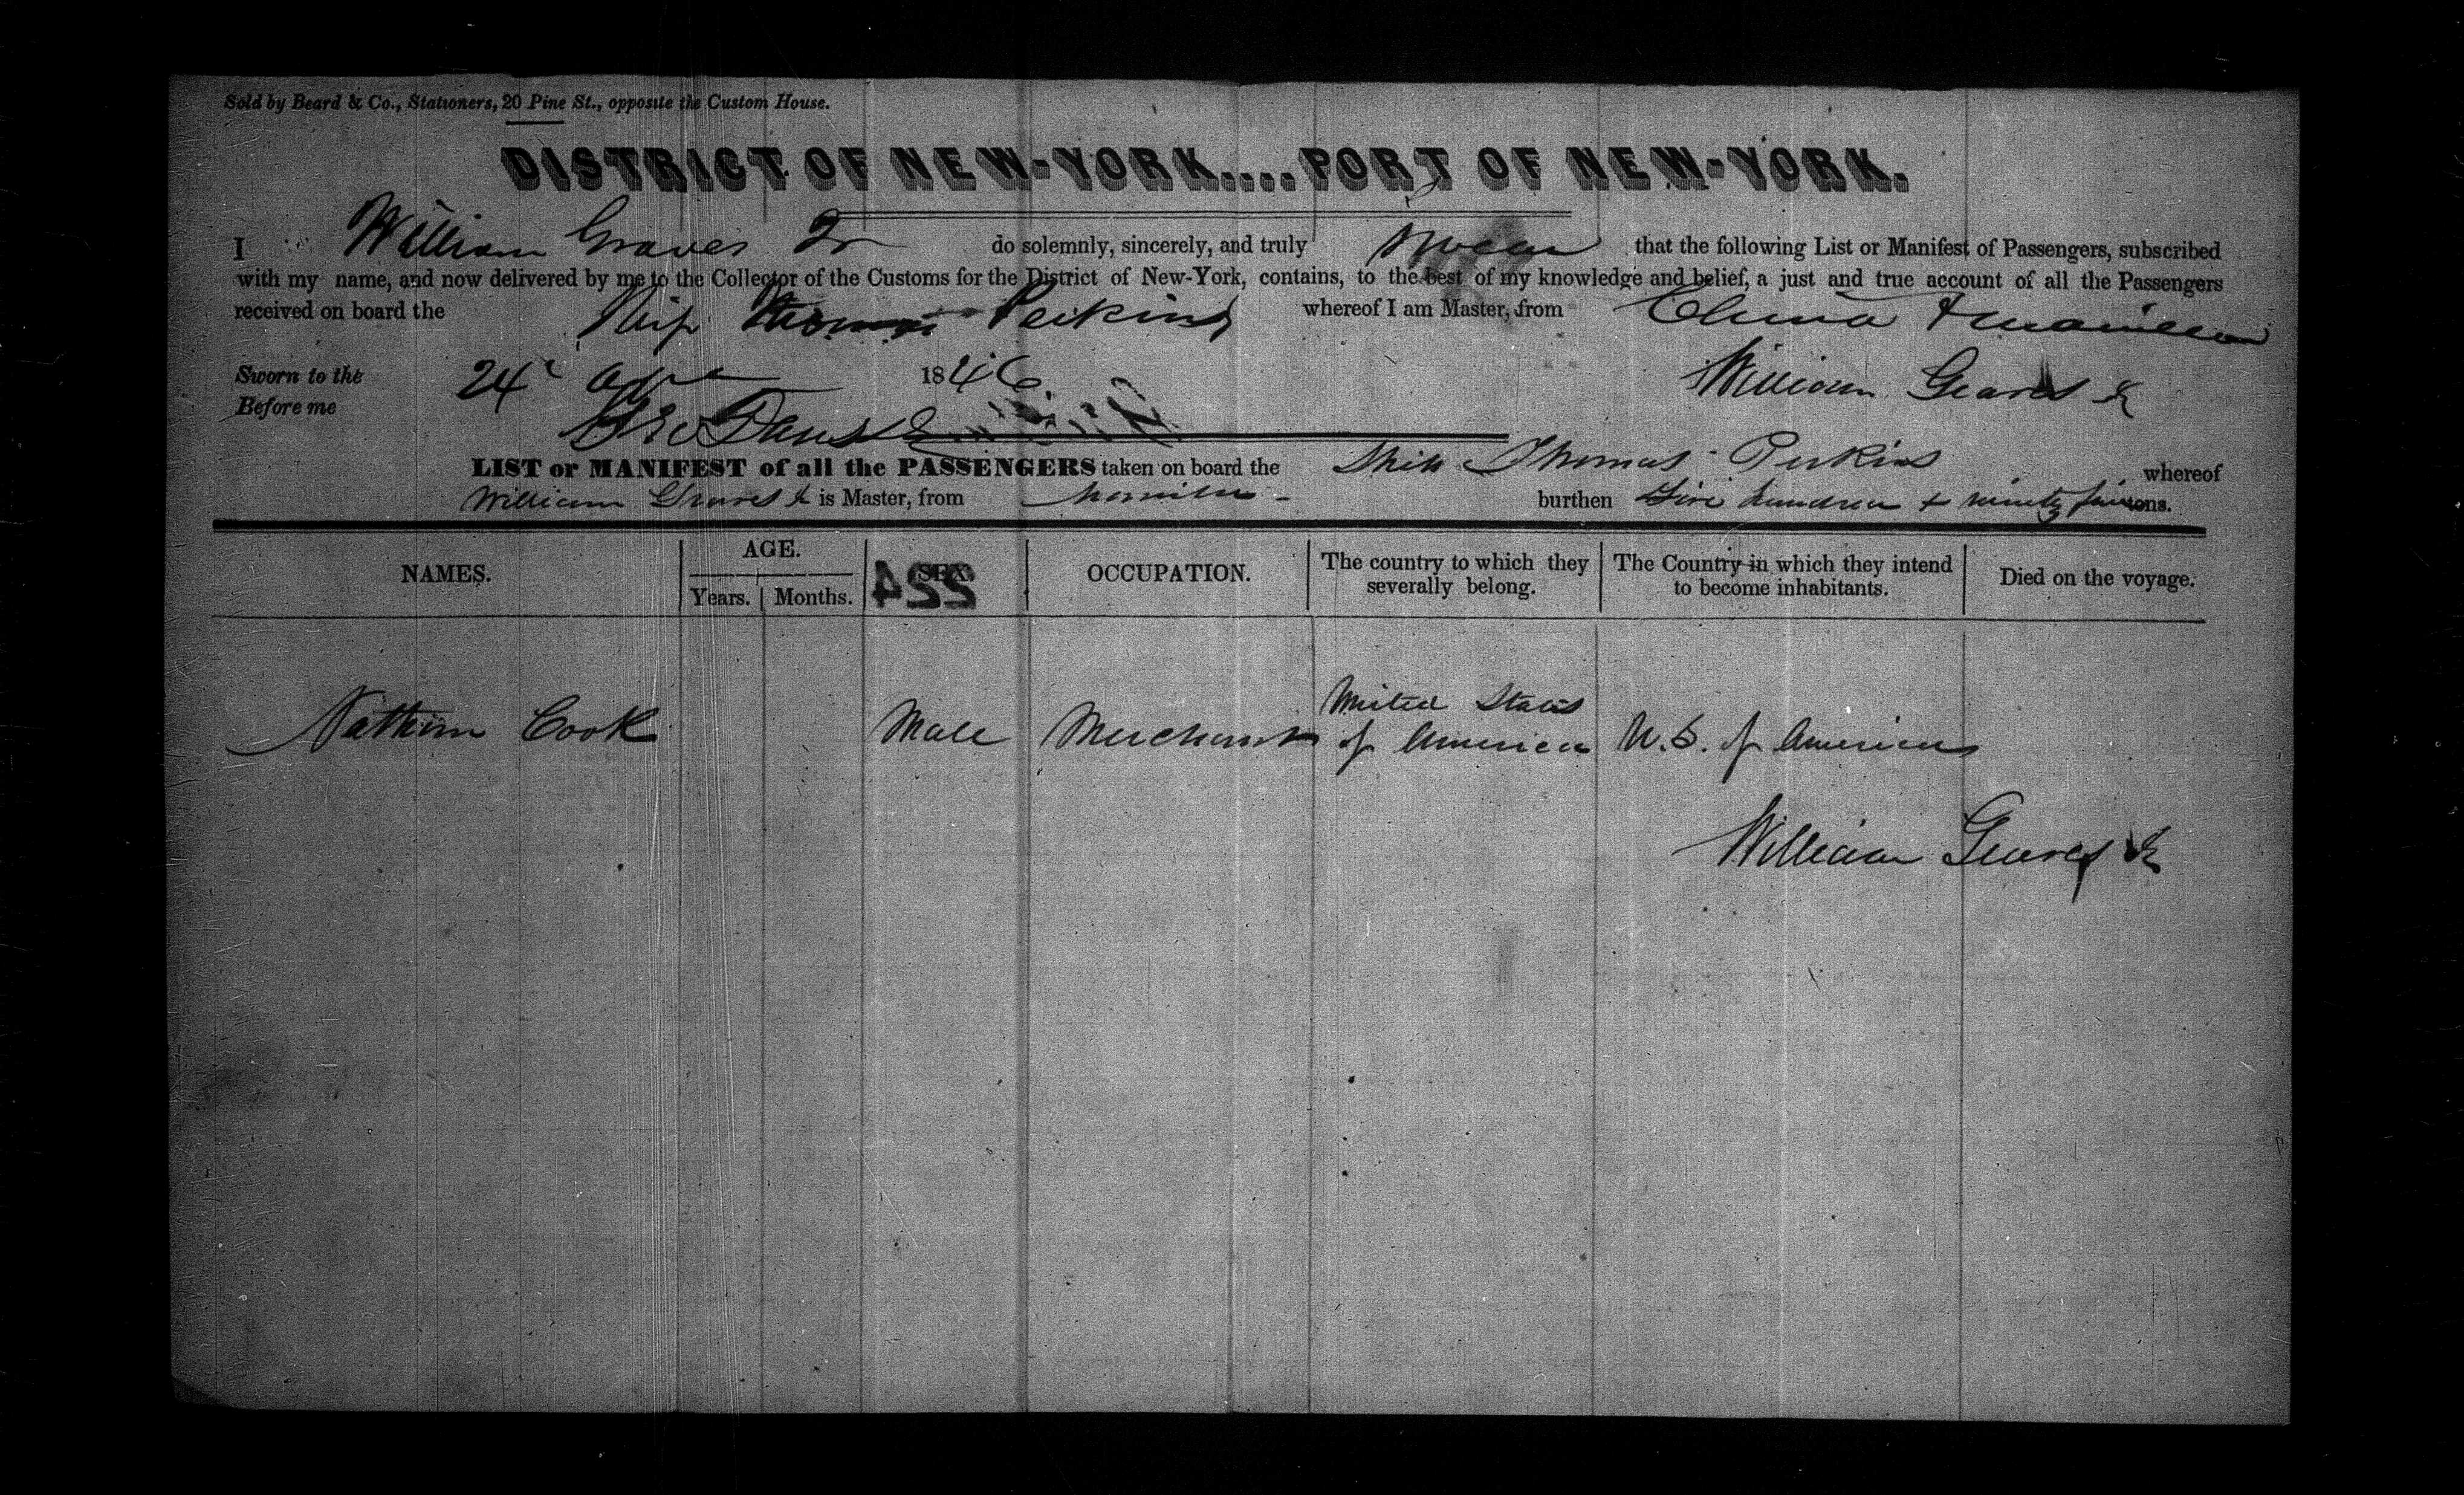 Sold by Beard & Co., Stationers, 20 Pine St., opposite the Custom House.
DISTRICT OF NEW-YORK....PORT OF NEW-YORK.
I William Graves Jr do solemnly, sincerely, and truly swear that the following List or Manifest of Passengers, subscribed
with my name, and now delivered by me to the Collector of the Customs for the District of New-York, contains, to the best of my knowledge and belief, a just and true account of all the Passengers
received on board the Ship Thomas Perkins whereof I am Master, from China & Manilla
Sworn to the 24 Apr 1846
William Graves Jr
Before me
LIST or MANIFEST of all the PASSENGERS taken on board the Ship Thomas Perkins whereof
William Graves Jr is Master, from Manilla - burthen Five hundred & ninety five tons.
NAMES. AGE. Years. Months. SEX. OCCUPATION. The country to which they severally belong. The Country in which they intend to become inhabitants. Died on the voyage.
224
Nathan Cook Male Merchant United States of America U.S. of America
William Graves Jr